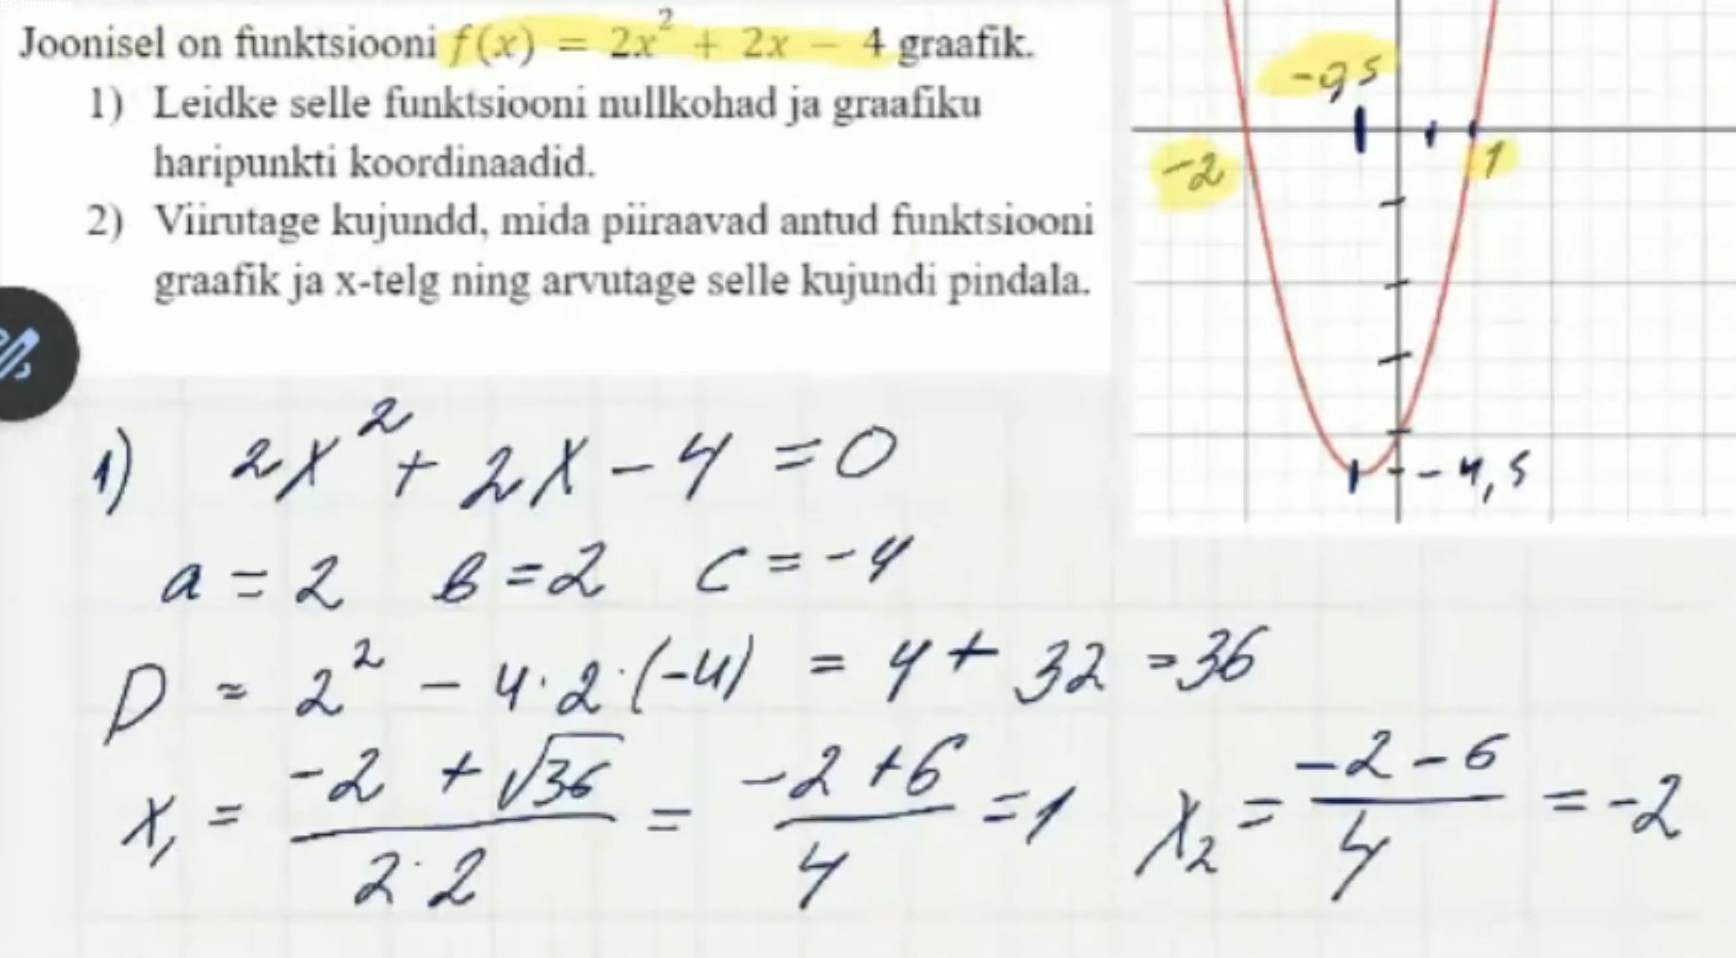 Joonisel on funktsiooni f(x) = 2x² + 2x − 4 graafik.
1) Leidke selle funktsiooni nullkohad ja graafiku
haripunkti koordinaadid.
2) Viirutage kujundd, mida piiraavad antud funktsiooni
graafik ja x-telg ning arvutage selle kujundi pindala.
-0,5
-2
1
-4,5
1) 2x² + 2x - 4 = 0
a = 2 b = 2 c = -4
D = 2² - 4·2·(-4) = 4 + 32 = 36
x₁ = (-2 + √36)/(2·2) = (-2 + 6)/4 = 1 x₂ = (-2 - 6)/4 = -2